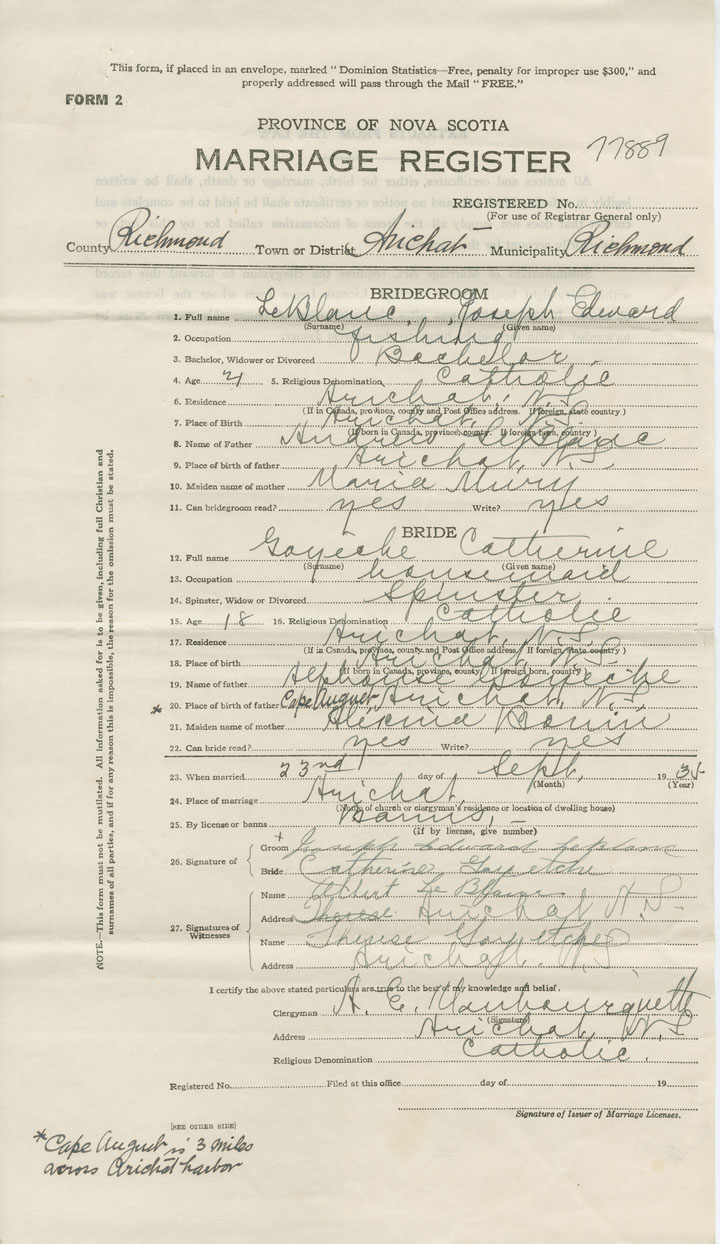 This form, if placed in an envelope, marked "Dominion Statistics—Free, penalty for improper use $300," and
properly addressed will pass through the Mail "FREE."
FORM 2
PROVINCE OF NOVA SCOTIA
MARRIAGE REGISTER 77889
REGISTERED No.
(For use of Registrar General only)
County Richmond Town or District Arichat Municipality Richmond
BRIDEGROOM
1. Full name LeBlanc, Joseph Edward
(Surname) (Given name)
2. Occupation fishing
3. Bachelor, Widower or Divorced Bachelor
4. Age 21 5. Religious Denomination Catholic
6. Residence Arichat, N.S.
(If in Canada, province, county and Post Office address. If foreign, state country)
7. Place of Birth Arichat, N.S.
(If born in Canada, province, county. If foreign born, country)
8. Name of Father Andrew LeBlanc
9. Place of birth of father Arichat, N.S.
10. Maiden name of mother Maria Mury
11. Can bridegroom read? yes Write? yes
BRIDE
12. Full name Goyeche Catherine
(Surname) (Given name)
13. Occupation housemaid
14. Spinster, Widow or Divorced Spinster
15. Age 18 16. Religious Denomination Catholic
17. Residence Arichat, N.S.
(If in Canada, province, county and Post Office address. If foreign, state country)
18. Place of birth Arichat, N.S.
(If born in Canada, province, county. If foreign born, country)
19. Name of father Alphonse Goyeche
* 20. Place of birth of father Cape August, Arichat, N.S.
21. Maiden name of mother
22. Can bride read? yes Write? yes
23. When married 23rd day of Sept, 1935
(Month) (Year)
24. Place of marriage Arichat
(Name of church or clergyman's residence or location of dwelling house)
25. By license or banns Banns, -
(if by license, give number)
26. Signature of
Groom x Joseph Edward Leblanc
Bride Catherine Goyetche
27. Signatures of Witnesses
Name Albert Le Blanc
Address Therese Arichat N.S-
Name Therese Goyetche
Address Arichat N.S
I certify the above stated particulars are true to the best of my knowledge and belief.
Clergyman A. E. Mombourquette
(Signature)
Address Arichat, N.S
Religious Denomination Catholic,
Registered No. Filed at this office day of 19
Signature of Issuer of Marriage Licenses.
[SEE OTHER SIDE]
*Cape August is 3 miles
across Arichat harbor
NOTE.—This form must not be mutilated. All information asked for is to be given, including full Christian and
surnames of all parties, and if for any reason this is impossible, the reason for the omission must be stated.